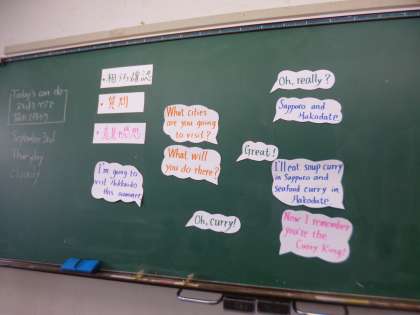 Today's can do
September 3rd
Thursday
Cloudy
・相づち確認
・質問
・意見・感想
I'm going to
visit Hokkaido
this summer!
What cities
are you going
to visit?
What will
you do there?
Oh, curry!
Oh, really?
Sapporo and
Hakodate.
Great!
I'll eat soup curry
in Sapporo and
seafood curry in
Hakodate.
Now I remember
you're the
Curry King!